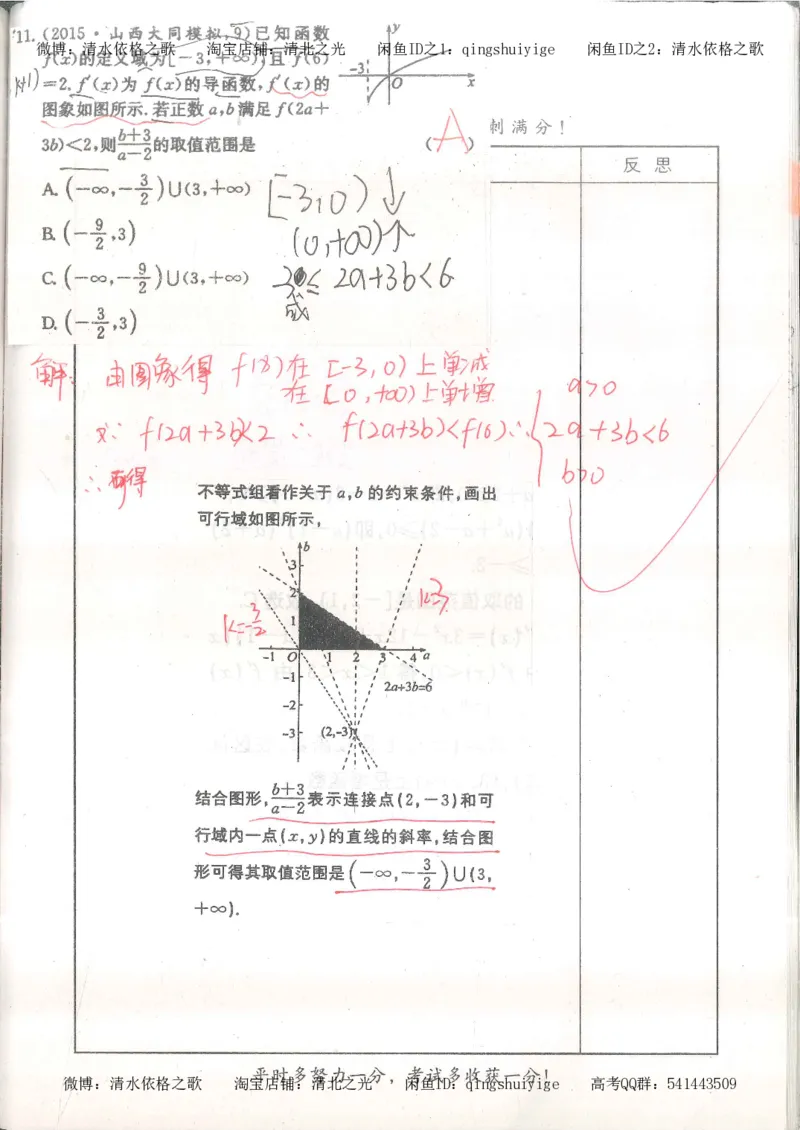 11. (2015·山西大同模拟,9)已知函数
微博：清水依格之歌 淘宝店铺：清北之光 闲鱼ID之1：qingshuiyige 闲鱼ID之2：清水依格之歌
f(x)的定义域为[-3,+∞),且 f(6)
=2. f′(x)为 f(x)的导函数, f′(x)的
图象如图所示.若正数 a,b 满足 f(2a+
3b)<2,则 \frac{b+3}{a-2} 的取值范围是 ( A )
y
-3 O x
刺满分!
反思
A. (-∞,-\frac{3}{2})∪(3,+∞)
B. (-\frac{9}{2},3)
C. (-∞,-\frac{9}{2})∪(3,+∞)
D. (-\frac{3}{2},3)
[-3,0) ↓
(0,+∞)↑
≤ 2a+3b<6
解: 由图象得 f(x)在 [-3,0) 上单减
在 [0,+∞)上单增
又∵ f(2a+3b)<2 ∴ f(2a+3b)<f(6) ∴ { a>0
2a+3b<6
b>0
∴ 可得
不等式组看作关于 a,b 的约束条件,画出
可行域如图所示,
b
3
2
1
-1 O 1 2 3 4 a
-1
-2
-3
2a+3b=6
(2,-3)
k=3
k=-\frac{3}{2}
结合图形, \frac{b+3}{a-2} 表示连接点(2,-3)和可
行域内一点(x,y)的直线的斜率,结合图
形可得其取值范围是 (-∞,-\frac{3}{2})∪(3,
+∞).
平时多努力一分，考试多收获一分!
微博：清水依格之歌 淘宝店铺：清北之光 闲鱼ID：qingshuiyige 高考QQ群：541443509